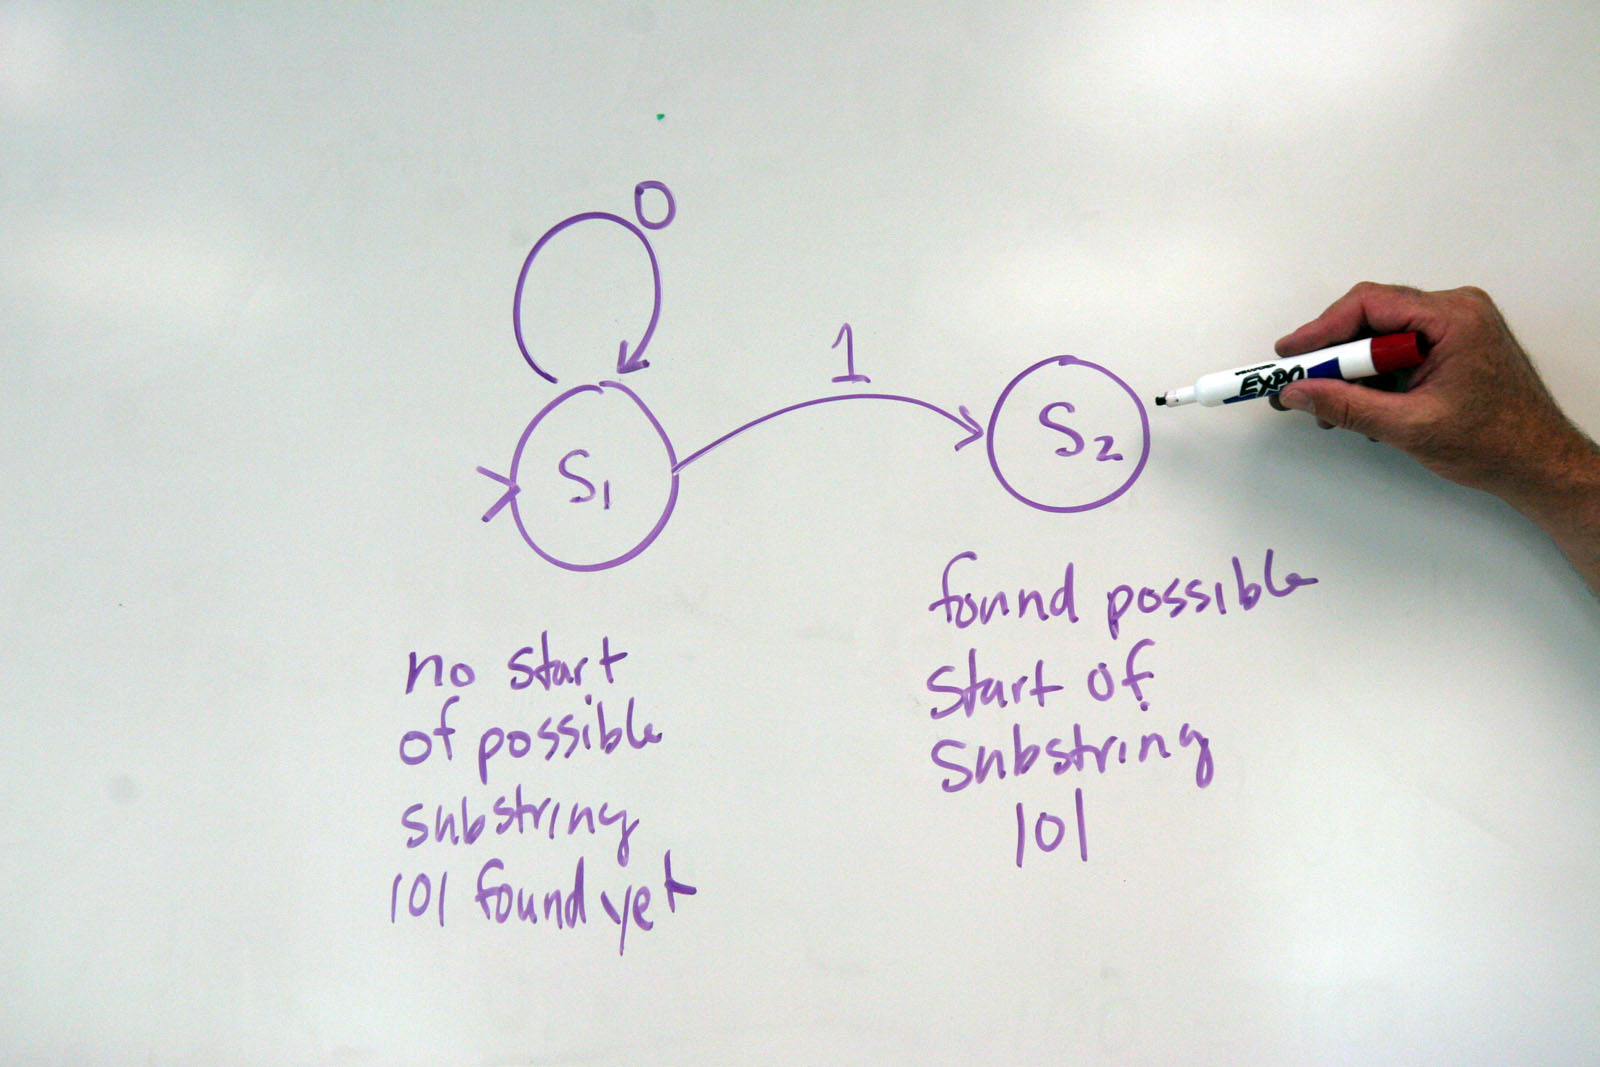 0
1
S1
S2
EXPO
no start
of possible
substring
101 found yet
found possible
start of
substring
101